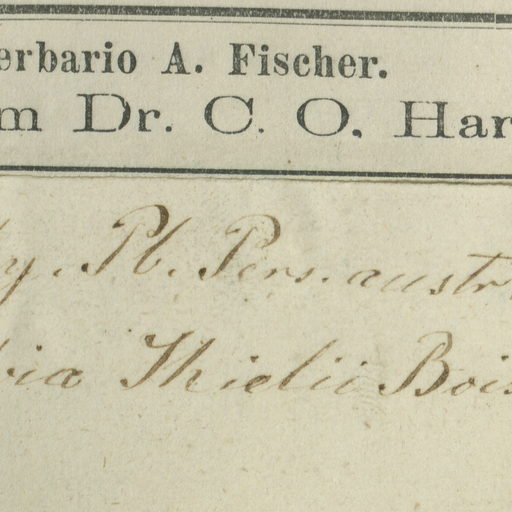 erbario A. Fischer.
m Dr. C. O. Har
y. Pl. Pers. austr.
bia Thielii Bois